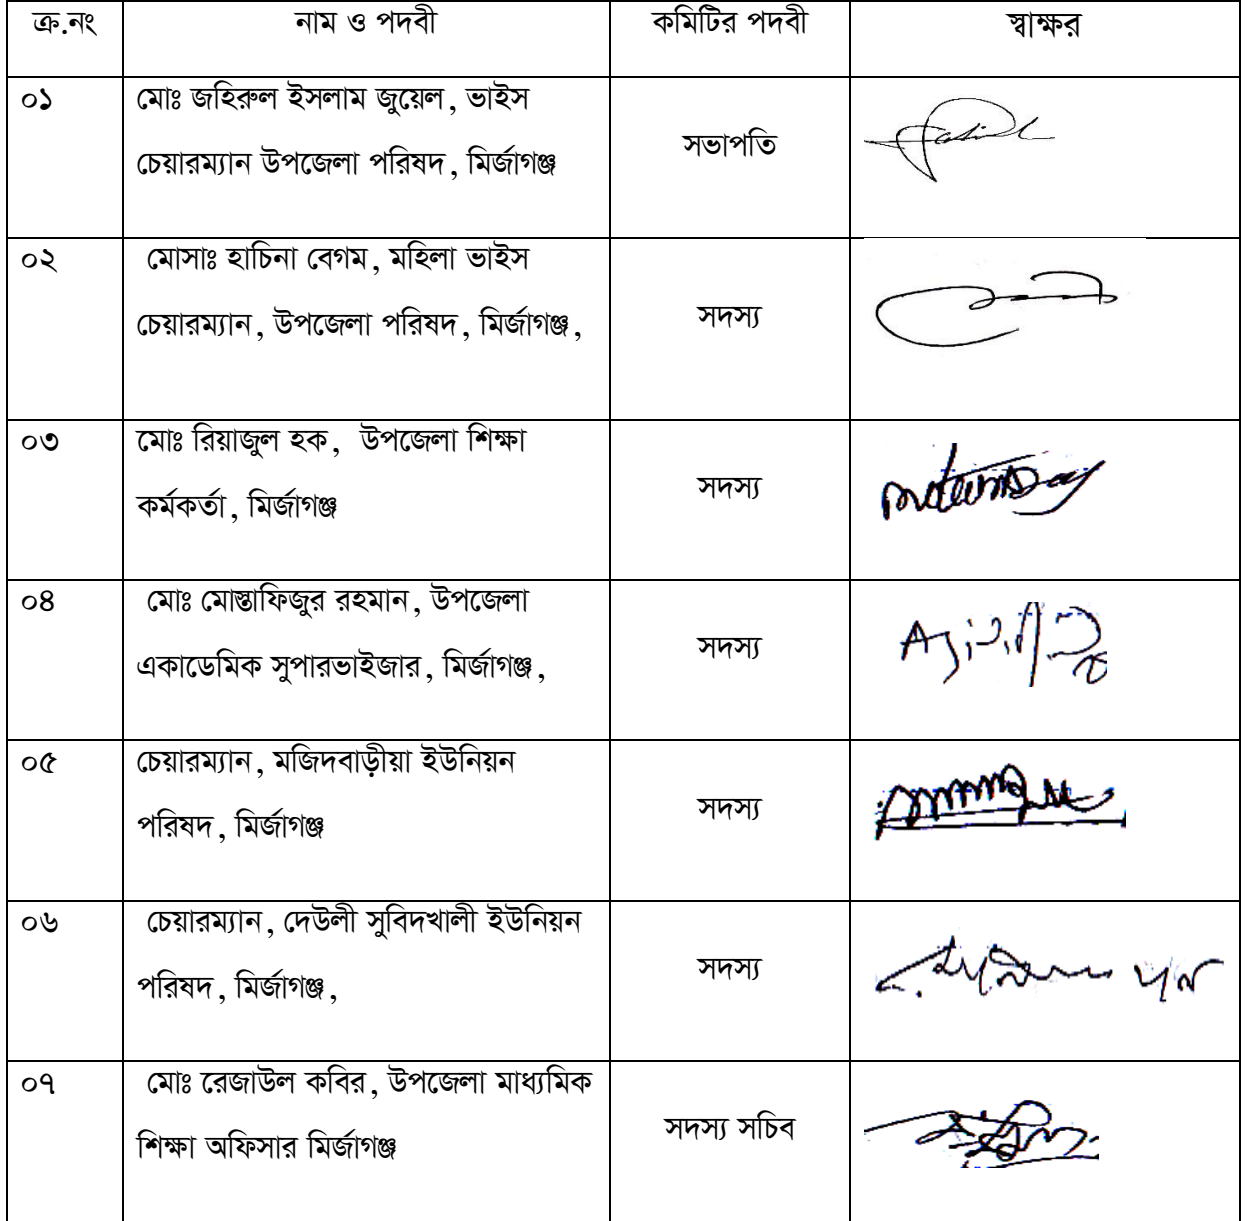 ক্র.নং নাম ও পদবী কমিটির পদবী স্বাক্ষর
০১ মোঃ জহিরুল ইসলাম জুয়েল, ভাইস
চেয়ারম্যান উপজেলা পরিষদ, মির্জাগঞ্জ সভাপতি
০২ মোসাঃ হাচিনা বেগম, মহিলা ভাইস
চেয়ারম্যান, উপজেলা পরিষদ, মির্জাগঞ্জ, সদস্য
০৩ মোঃ রিয়াজুল হক, উপজেলা শিক্ষা
কর্মকর্তা, মির্জাগঞ্জ সদস্য
০৪ মোঃ মোস্তাফিজুর রহমান, উপজেলা
একাডেমিক সুপারভাইজার, মির্জাগঞ্জ, সদস্য
০৫ চেয়ারম্যান, মজিদবাড়ীয়া ইউনিয়ন
পরিষদ, মির্জাগঞ্জ সদস্য
০৬ চেয়ারম্যান, দেউলী সুবিদখালী ইউনিয়ন
পরিষদ, মির্জাগঞ্জ, সদস্য
০৭ মোঃ রেজাউল কবির, উপজেলা মাধ্যমিক
শিক্ষা অফিসার মির্জাগঞ্জ সদস্য সচিব